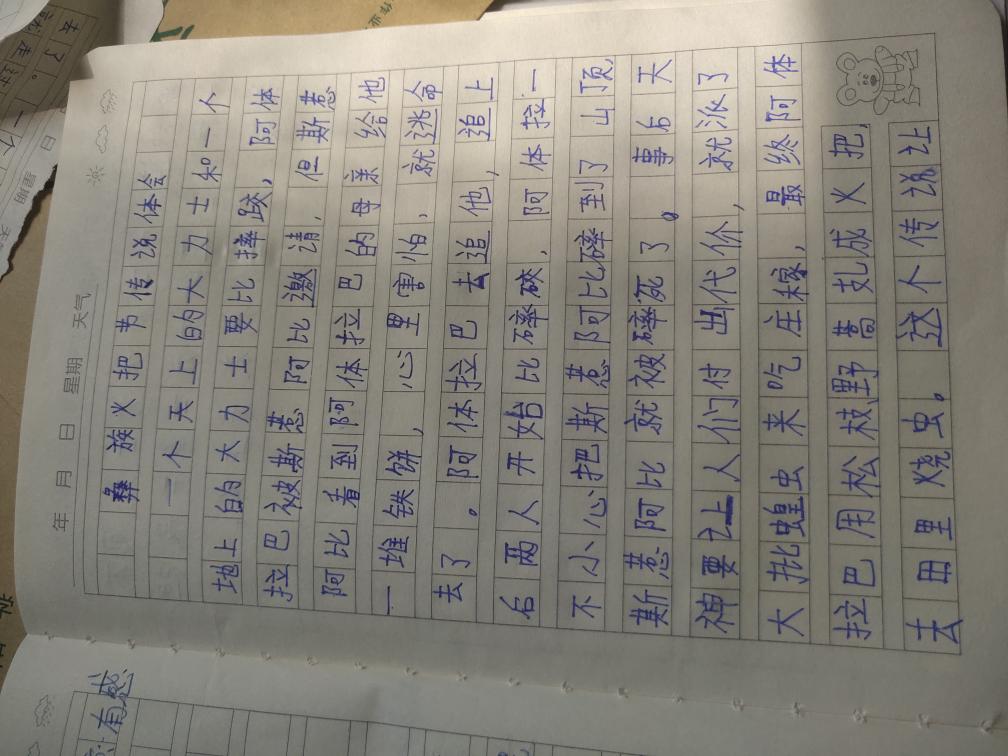 年 月 日 星期 天气
彝族火把节传说体会
一个天上的大力士和一个
地上的大力士要比摔跤，阿体
拉巴被斯惹阿比邀请，但斯惹
阿比看到阿体拉巴的母亲给他
一堆铁饼，心里害怕，就逃命
去了。阿体拉巴去追他，追上
后两人开始比磷砍，阿体拉一
不小心把斯惹阿比磷到了山顶，
斯惹阿比就被磷死了。事后天
神要让人们付出代价，就派了
大批蝗虫来吃庄稼，最终阿体
拉巴用松枝野蒿扎成火把，
去田里烧虫。这个传说让
有感
去了。
一个
日
星期